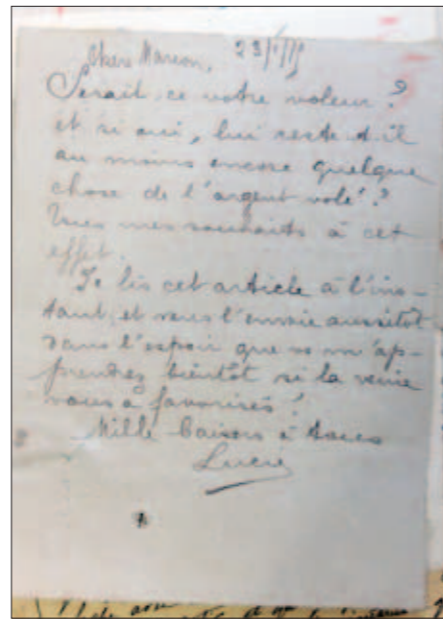 Chère Marion,
Serait-ce votre voleur?
et si oui, lui reste-t-il
au moins encore quelque
chose de l'argent volé?
Tous mes souhaits à cet
effet.
Je lis cet article à l'ins-
tant, et vous l'envoie aussitôt
dans l'espoir que vs m'ap-
prendrez bientôt si la veine
vous a favorisés!
Mille baisers à tous
Lucie